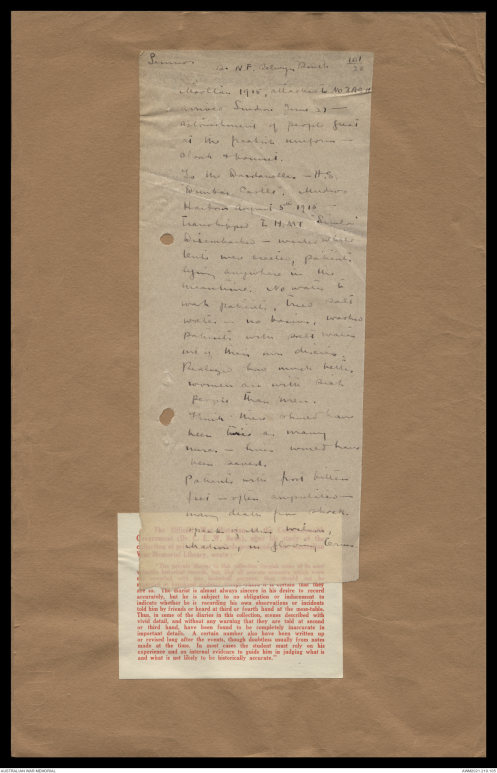 Sr. N. F. Selwyn Smith
101
22
1915, attached to No 2 AGH
arrived London June 27 —
astonishment of people great
at the freakish uniform —
cloak & bonnet.
To the Dardanelles — H.S.
Dunbar Castle. Mudros
Harbour August 5th 1915
transhipped to H.M.T. "Simla"
Disembarked — waited while
tents were erected, patients
lying anywhere in the
meantime. No water to
wash patients, tried salt
water — no basins, washed
patients with salt water
out of their own dixies.
Realized how much better
women are with sick
people than men.
Think there should have
been twice as many
nurses — lives would have
been saved.
Patients with frost bitten
feet — often amputations —
many deaths from shock.
in glowing terms
are so. The diarist is almost always sincere in his desire to record
accurately, but he is subject to no obligation or inducement to
indicate whether he is recording his own observations or incidents
told him by friends or heard at third or fourth hand at the mess-table.
Thus, in some of the diaries in this collection, scenes described with
vivid detail, and without any warning that they are told at second
or third hand, have been found to be completely inaccurate in
important details. A certain number also have been written up
or revised long after the events, though doubtless usually from notes
made at the time. In most cases the student must rely on his
experience and on internal evidence to guide him in judging what is
and what is not likely to be historically accurate."
AUSTRALIAN WAR MEMORIAL